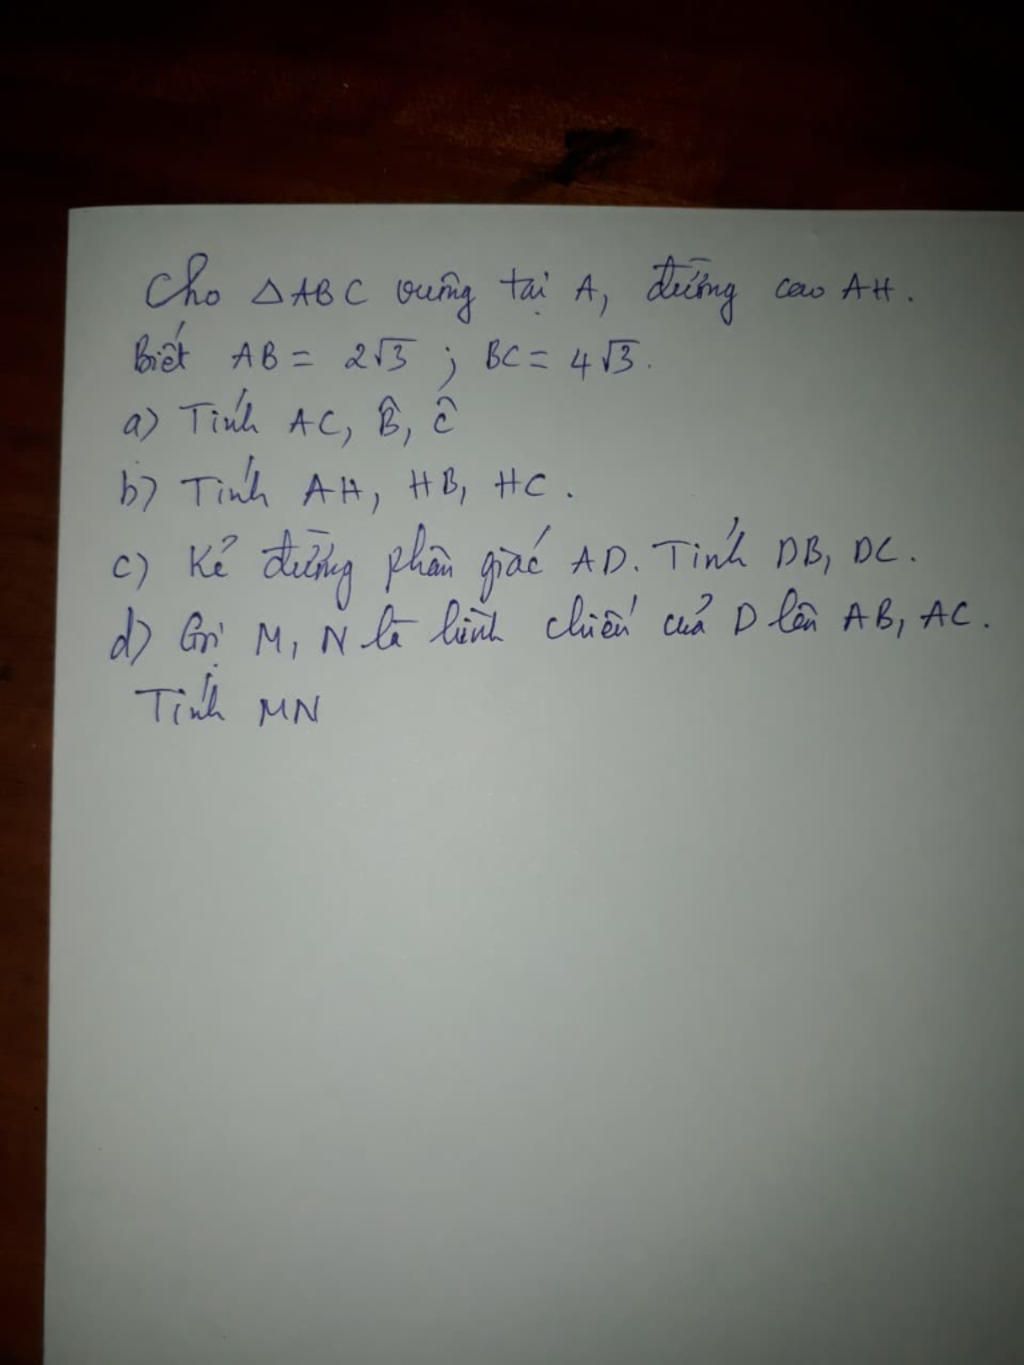 Cho △ABC vuông tại A, đường cao AH.
Biết AB = 2√3 ; BC = 4√3.
a) Tính AC, B̂, Ĉ
b) Tính AH, HB, HC.
c) Kẻ đường phân giác AD. Tính DB, DC.
d) Gọi M, N là hình chiếu của D lên AB, AC.
Tính MN